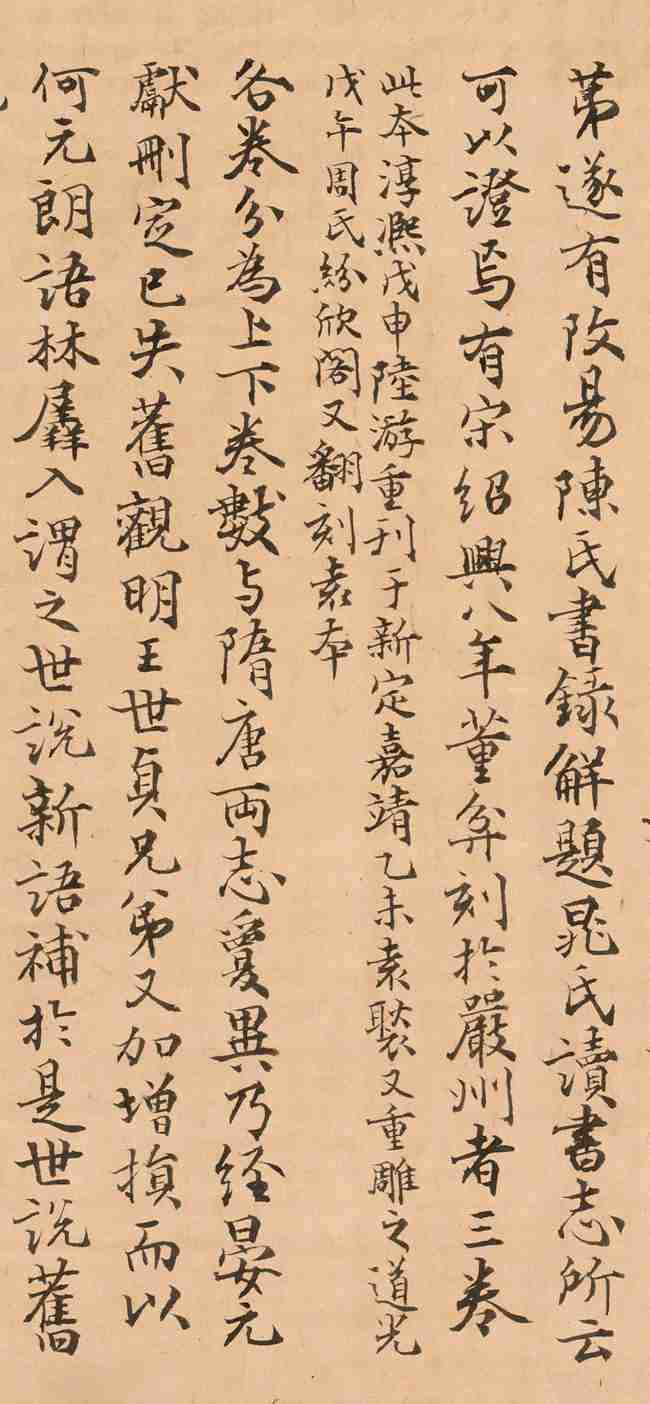 苐遂有改易陳氏書錄解題晁氏讀書志所云
可以證焉有宋紹興八年董弅刻於嚴州者三卷
此本淳熙戊申陸游重刊于新定嘉靖乙未袁褧又重雕之道光
戊午周氏紛欣閣又翻刻袁本
各卷分為上下卷數与隋唐両志敻異乃經晏元
獻刪定已失舊觀明王世貞兄弟又加增損而以
何元朗語林羼入謂之世說新語補於是世說舊